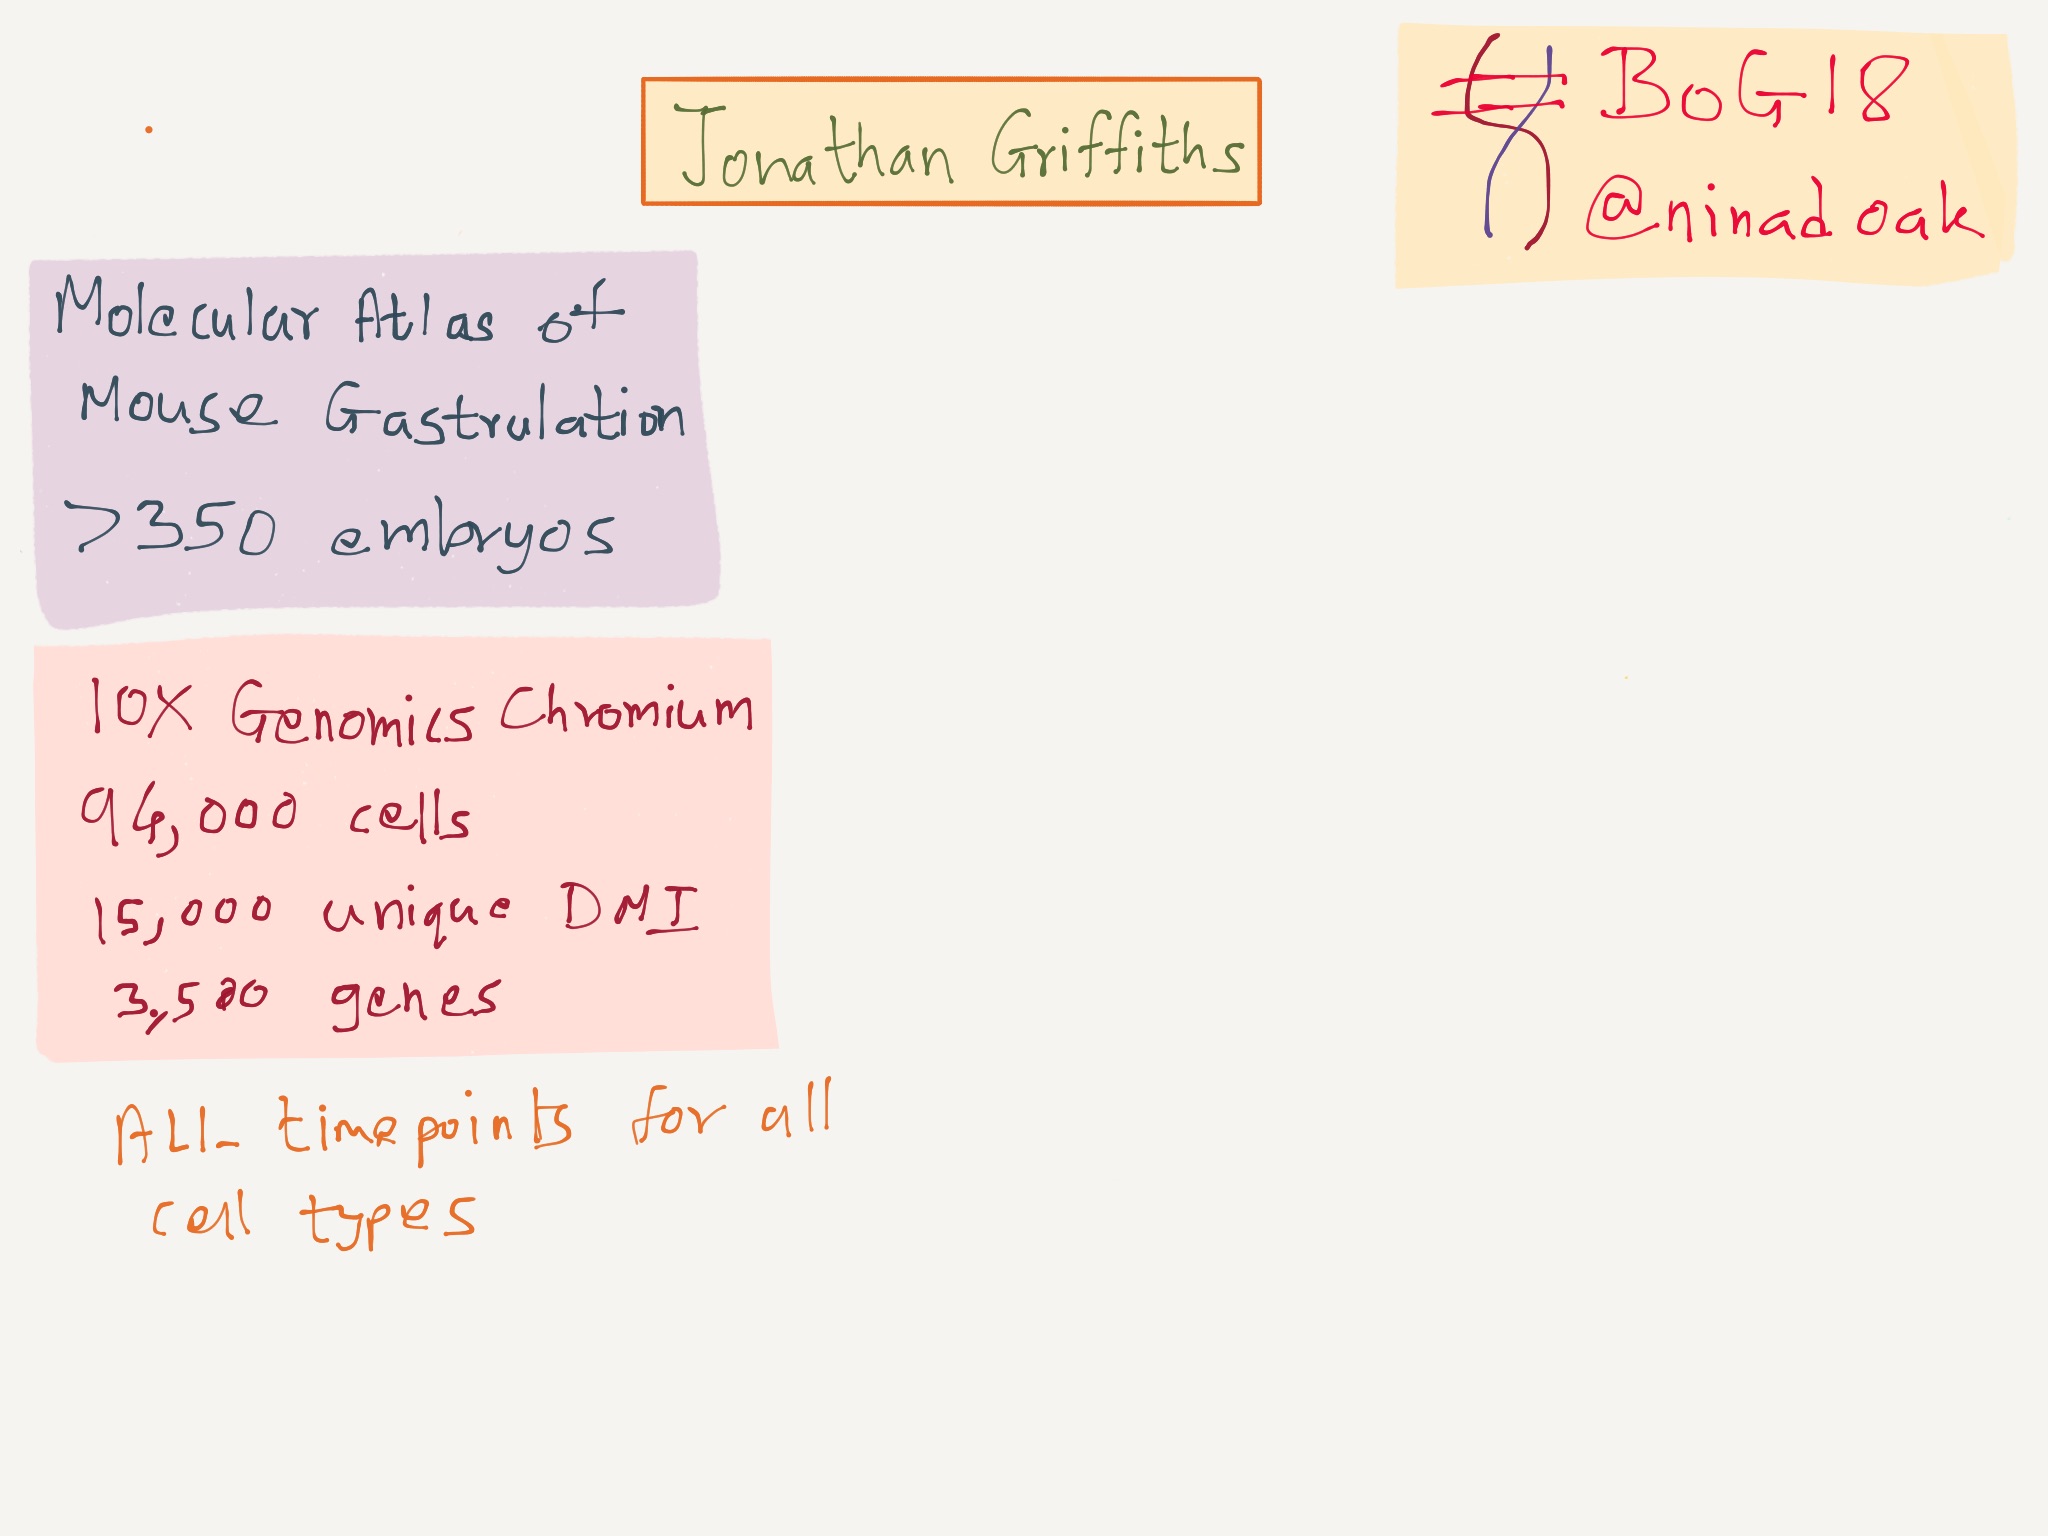 Jonathan Griffiths
#BoG18
@ninadoak
Molecular Atlas of
Mouse Gastrulation
>350 embryos
10X Genomics Chromium
94,000 cells
15,000 unique DMI
3,500 genes
ALL timepoints for all
cell types